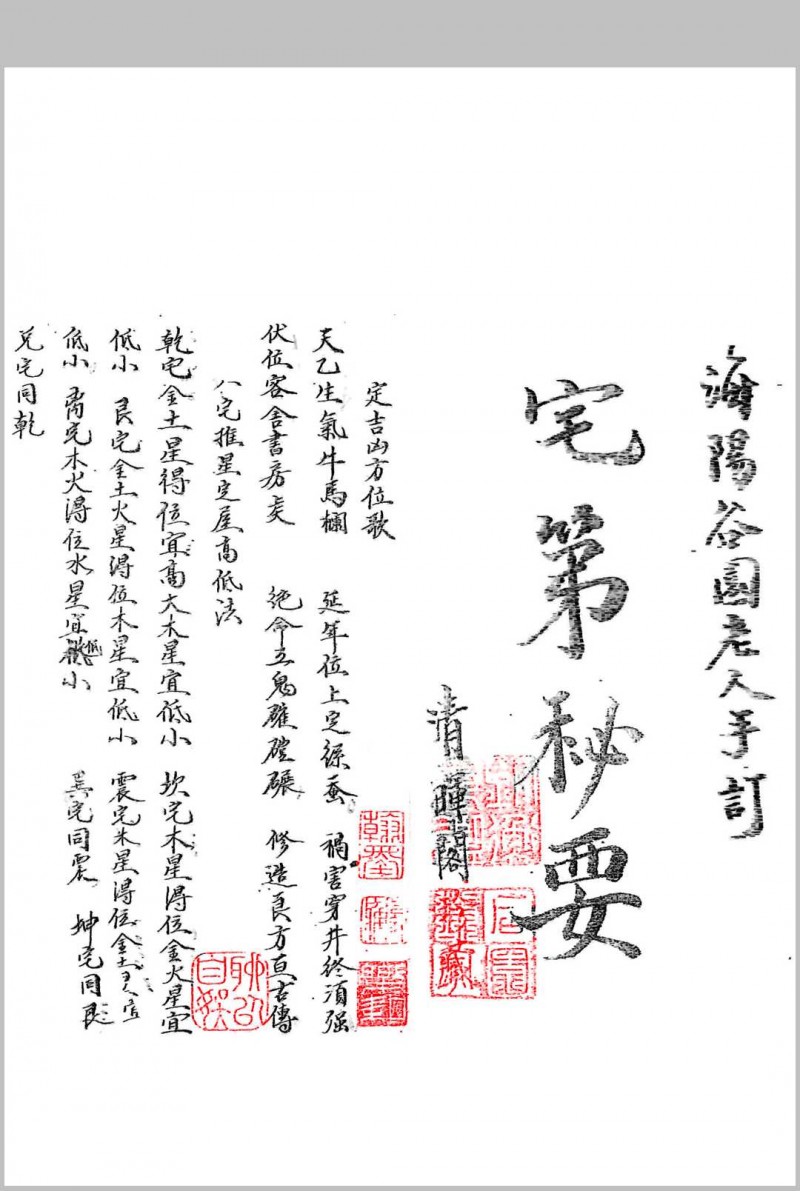 海陽谷園老人手訂
宅第秘要
清暉閣藏
定吉凶方位歌
天乙生氣牛馬欄 延年位上定綵蚕 禍害穿井終須强
伏位客舍書房矣 絶命五鬼碓磑碾 修造良方亘古傳
八宅推星定屋高低法
乾宅金土星得位宜高大木星宜低小 坎宅木星得位金火星宜
低小 艮宅金土火星得位木星宜低小 震宅朱星得位金土
低小 离宅木火得位水星宜低小 巽宅同震 坤宅同艮
兌宅同乾
聊以自娱